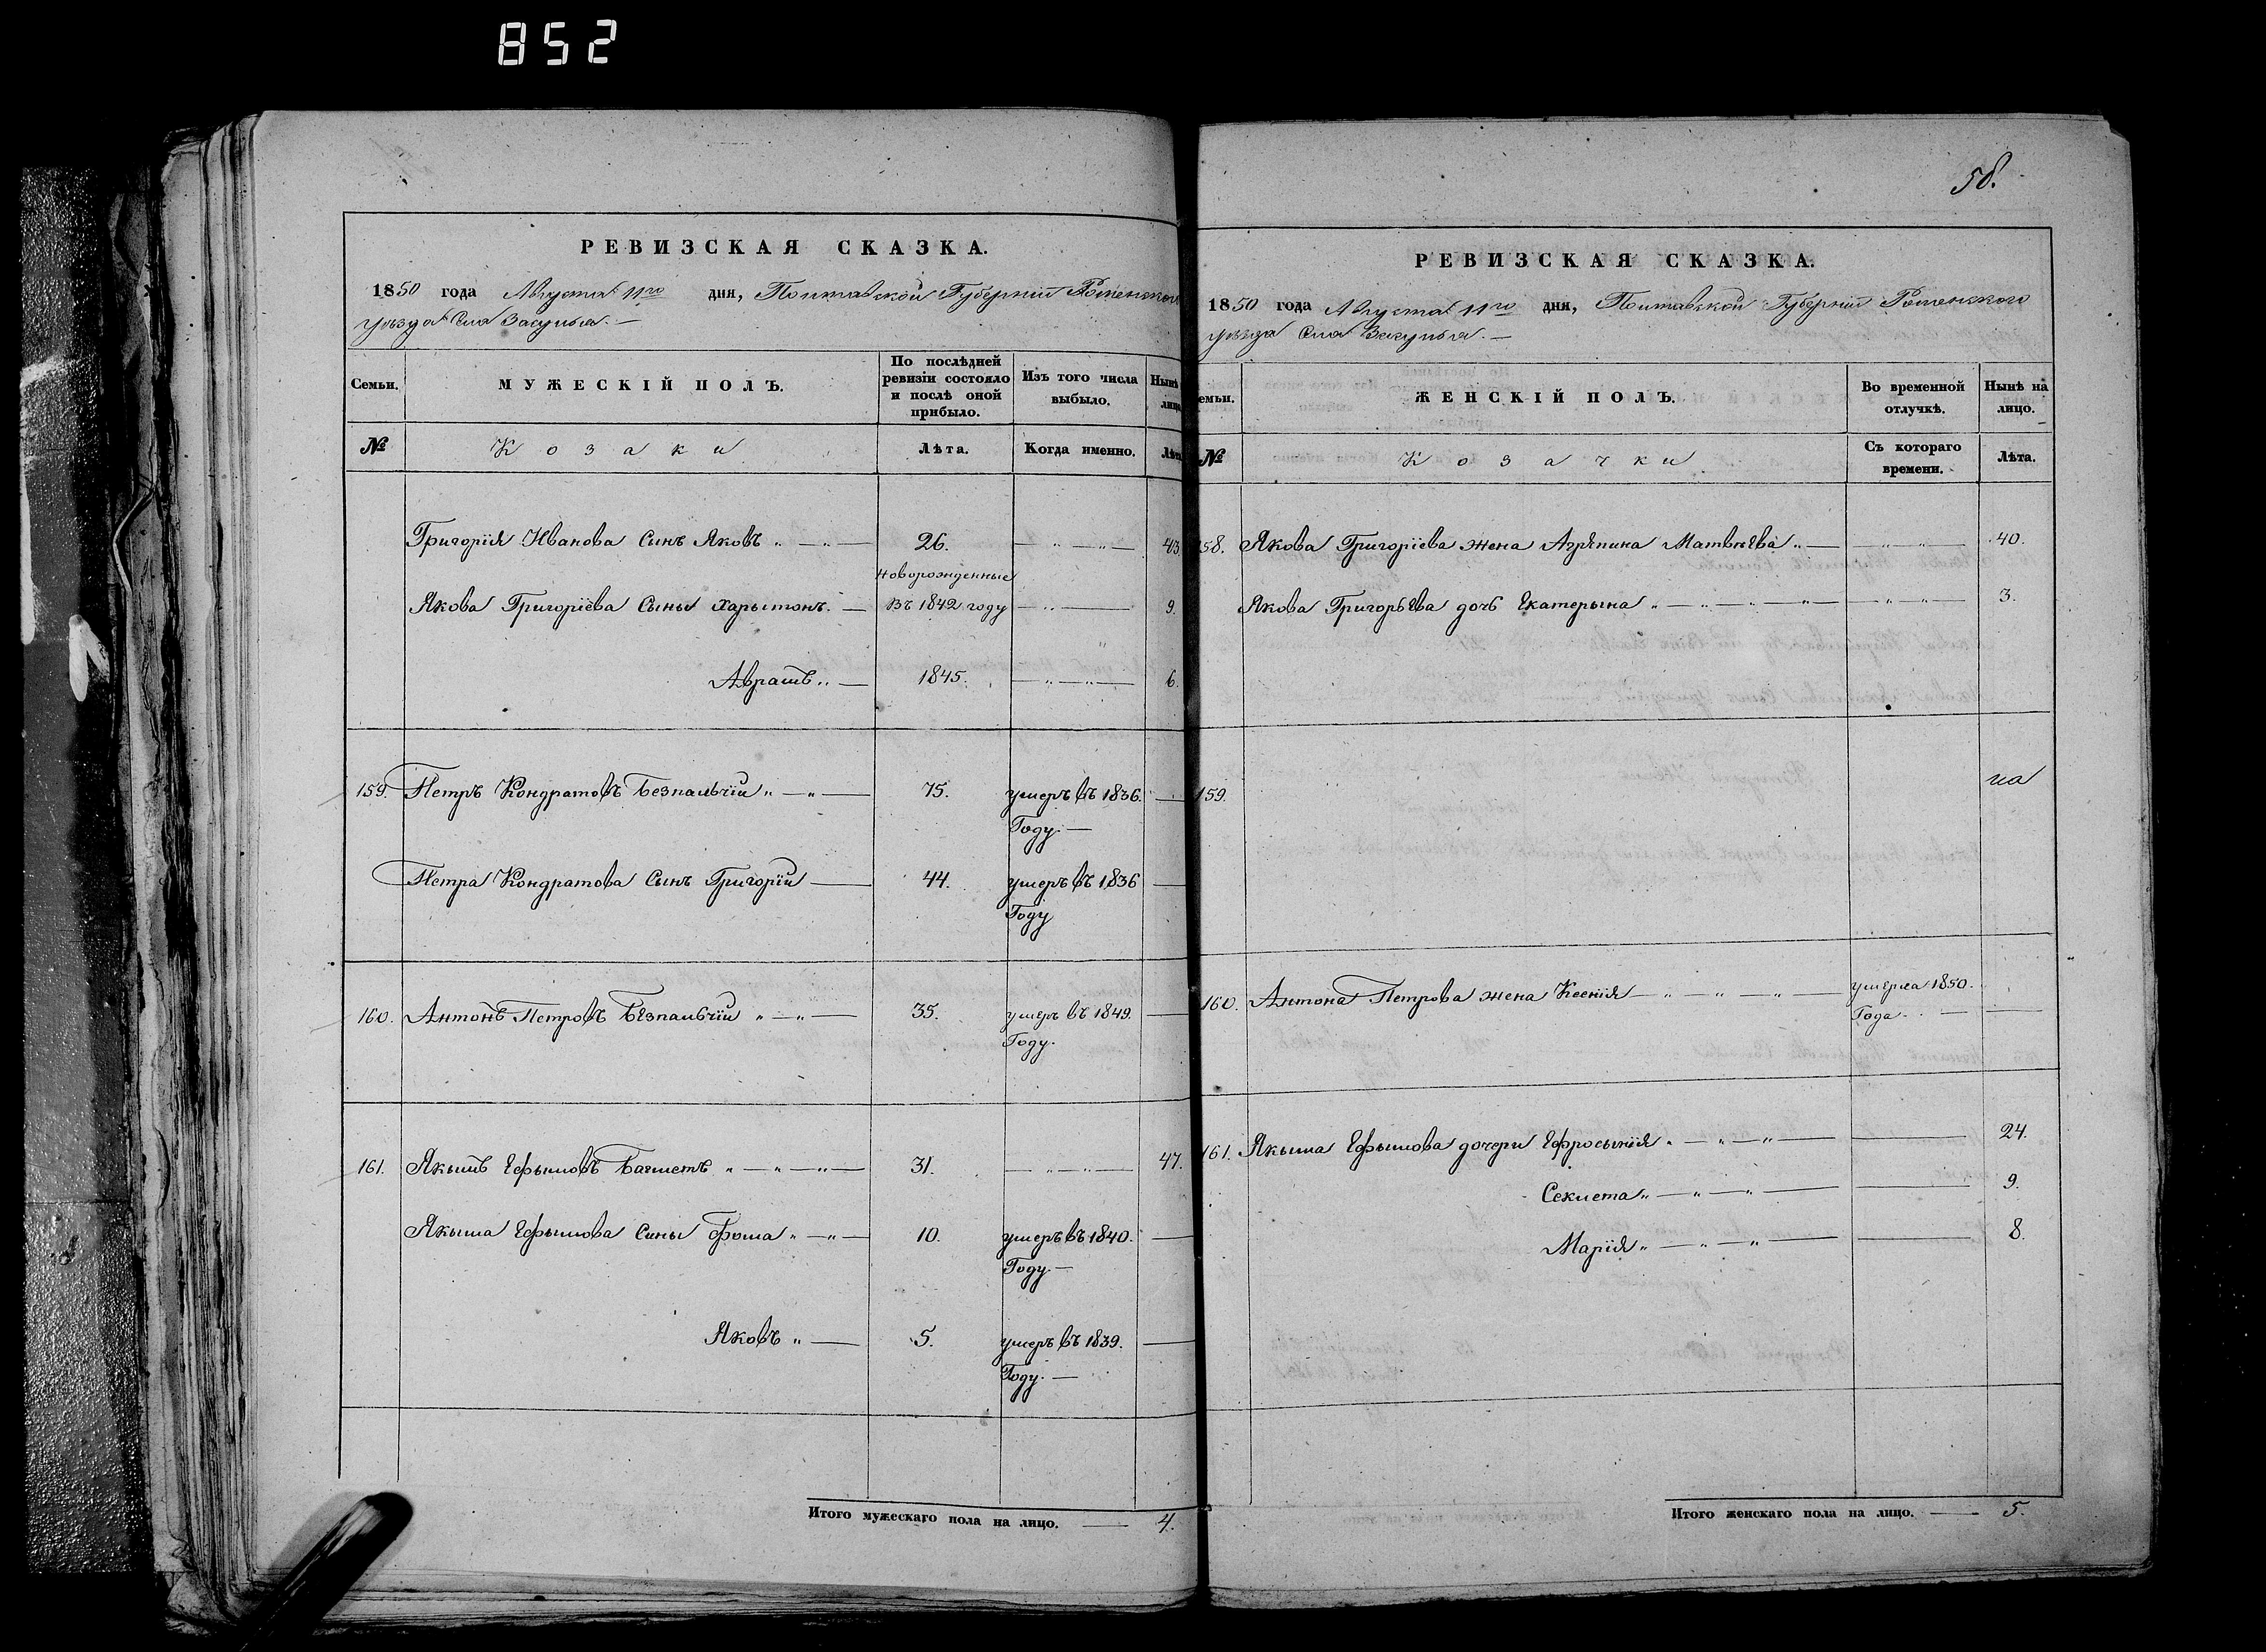 852
РЕВИЗСКАЯ СКАЗКА.
1850 года Августа 11го дня, Полтавской Губерніи Роменского
уѣзда Села Засулья. —
Семьи.
МУЖЕСКІЙ ПОЛЪ.
По послѣдней
ревизіи состояло
и послѣ оной
прибыло.
Изъ того числа
выбыло.
Нынѣ
лицо
№
Козаки
Лѣта.
Когда именно.
Лѣта
Григорія Иванова Сынъ Яковъ „ — 26. — „ — „ — 43
Новорожденные
Якова Григоріева Сыны Харытонъ. — Въ 1842 году — „ — 9.
Аврамъ „ — 1845. — „ — „ — 6.
159. Петръ Кондратовъ Безпальчій „ — „ — 75. умеръ въ 1836. —
Году. —
Петра Кондратова Сынъ Григорій — 44. умеръ въ 1836 —
Году
160. Антонъ Петровъ Безпальчій „ — „ — 35. умеръ въ 1849. —
Году.
161. Якымъ Ефымовъ Баглметъ „ — „ — „ — 31. — „ — „ — 47.
Якыма Ефымова Сины Фома „ — „ — 10. умеръ въ 1840. —
Году —
Яковъ „ — 5. умеръ въ 1839. —
Году. —
Итого мужескаго пола на лицо. — 4.
58.
РЕВИЗСКАЯ СКАЗКА.
1850 года Августа 11го дня, Полтавской Губерніи Роменского
уѣзда Села Засулья. —
емьи.
ЖЕНСКІЙ ПОЛЪ.
Во временной
отлучкѣ.
Нынѣ на
лицо.
№
Козачки
Съ котораго
времени.
Лѣта.
158. Якова Григоріева жена Агрѣпина Матвѣева „ — — „ — „ — 40.
Якова Григорьева дочь Екатерына „ — „ — „ — „ — „ — „ — 3.
159.
160. Антона Петрова жена Ксенія — „ — „ — „ — умерла 1850.
Года — —
161. Якыма Ефымова дочери Ефросынія „ — „ — „ — — 24.
Секлета „ — „ — „ — — 9.
Марія „ — „ — „ — — 8.
Итого женскаго пола на лицо. — 5.